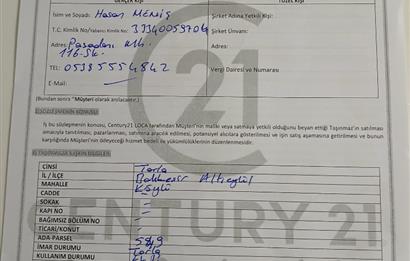 GERÇEK KİŞİ TÜZEL KİŞİ
İsim ve Soyadı: Hasan MEMİŞ Şirket Adına Yetkili Kişi:
T.C. Kimlik No/Yabancı Kimlik No: Şirket Ünvanı:
Adres:
116.Sk.
TEL: 05385554842 Vergi Dairesi ve Numarası
E-Mail:
(Bundan sonra "Müşteri" olarak anılacaktır.)
II. SÖZLEŞMENİN KONUSU
İş bu sözleşmenin konusu, Century21 LOCA tarafından Müşteri'nin malik veya satmaya yetkili olduğunu beyan ettiği Taşınmaz'ın satılması
amacıyla tanıtılması, pazarlanması, satımına aracılık edilmesi, potansiyel alıcılara gösterilmesi ve işin satış aşamasına getirilmesi ve bunun
karşılığında Müşteri'nin ödeyeceği hizmet bedeli ile yükümlülüklerinin düzenlenmesidir.
III. TAŞINMAZA İLİŞKİN BİLGİLER
CİNSİ Tarla
İL / İLÇE Balıkesir Altıeylül
MAHALLE Köylü
CADDE –
SOKAK –
KAPI NO –
BAĞIMSIZ BÖLÜM NO –
TİCARİ/KONUT –
ADA-PARSEL
İMAR DURUMU Tarla
KULLANIM DURUMU
21
CENTURY 21